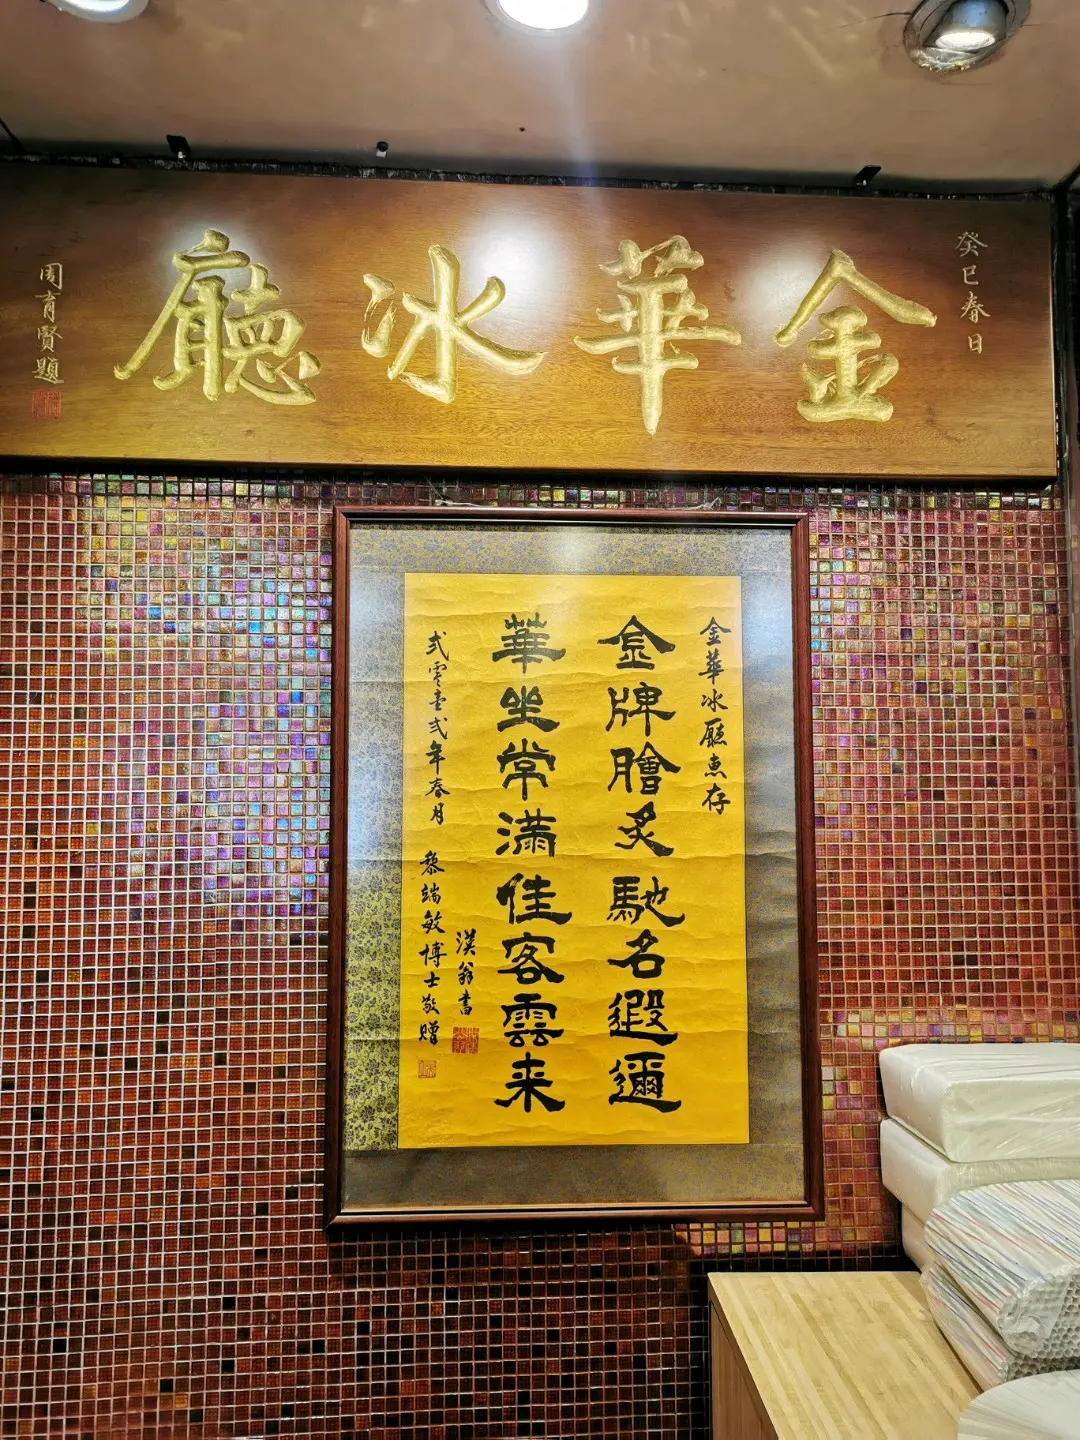 癸巳春日
金華冰廳
周育賢題
金華冰廳惠存
金牌膾炙馳名遐邇
華坐常滿佳客雲来
漢翁書
弍零壹弍年春月 黎端敏博士敬贈